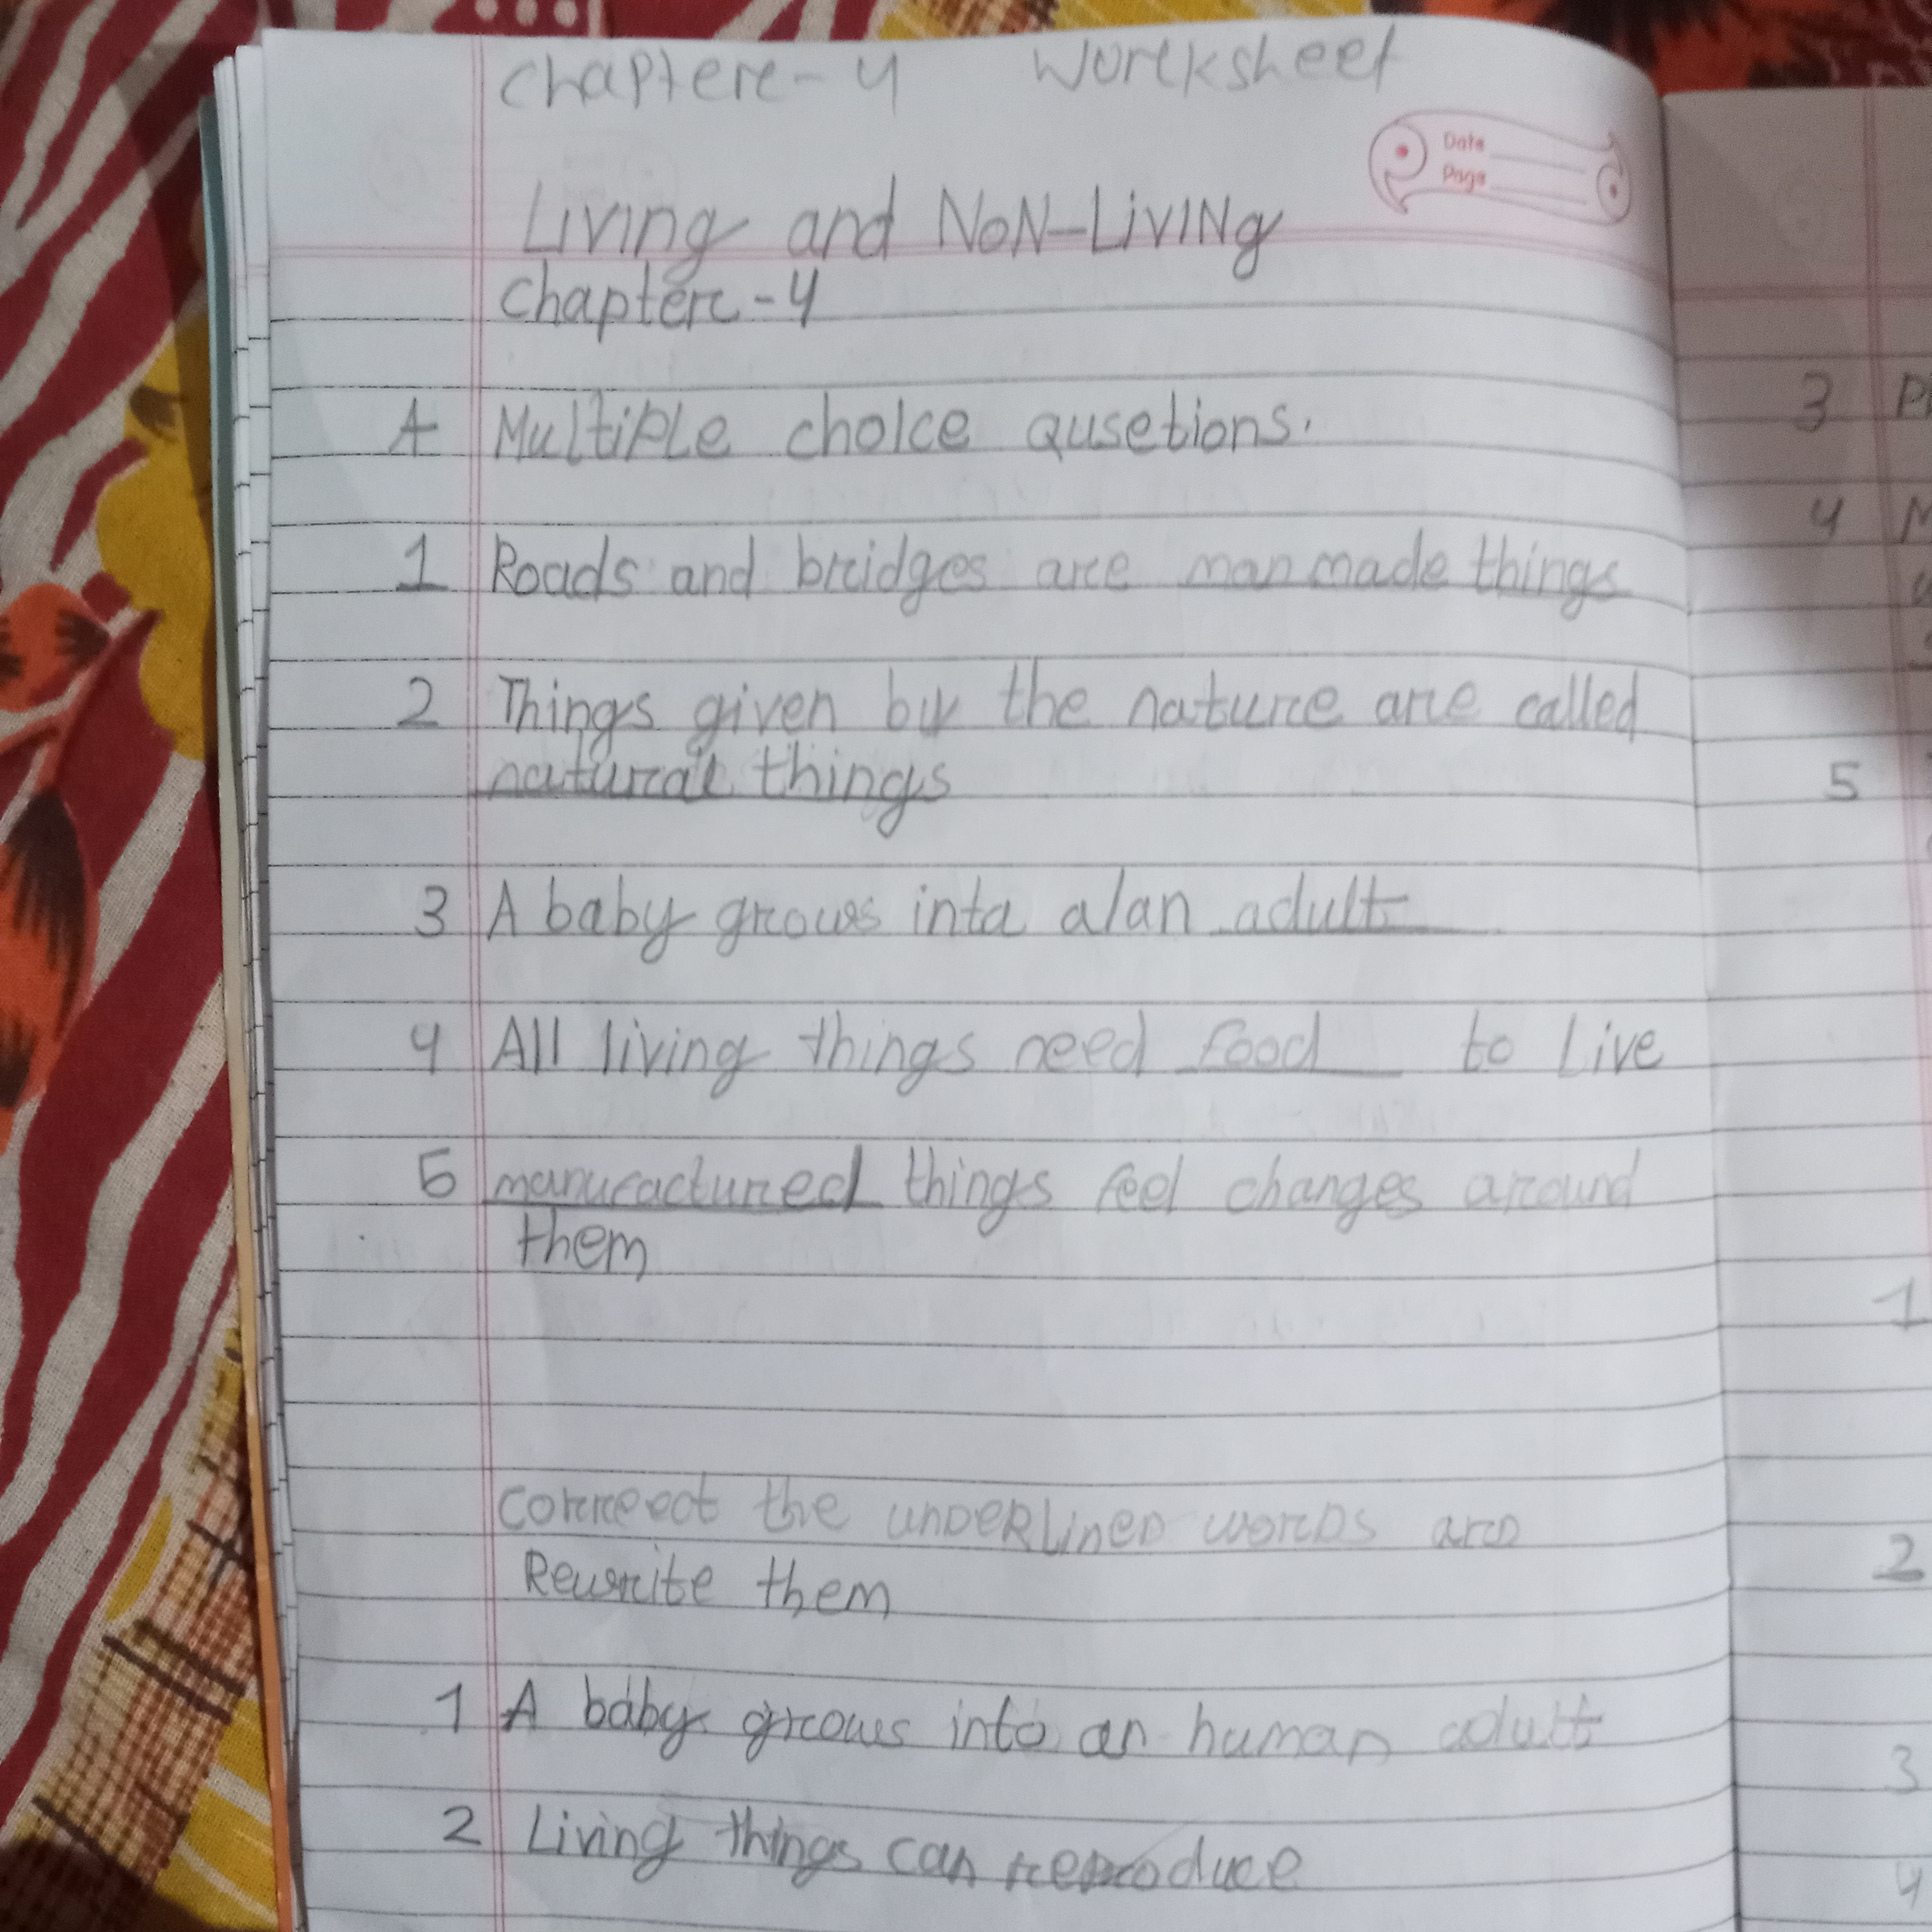 Chapter-4 Worksheet
Date
Page
Living and NoN-LiviNg
chapter-4
A Multiple choice qusetions.
1 Roads and bridges are man made things
2 Things given by the nature are called
natural things
3 A baby grows inta a/an adult
4 All living things need food to Live
5 manufactured things feel changes around
them
correct the unDERLineD worDs anD
Rewrite them
1 A baby grows into an human adult
2 Living things can reproduce
3
4
5
1
2
3
4